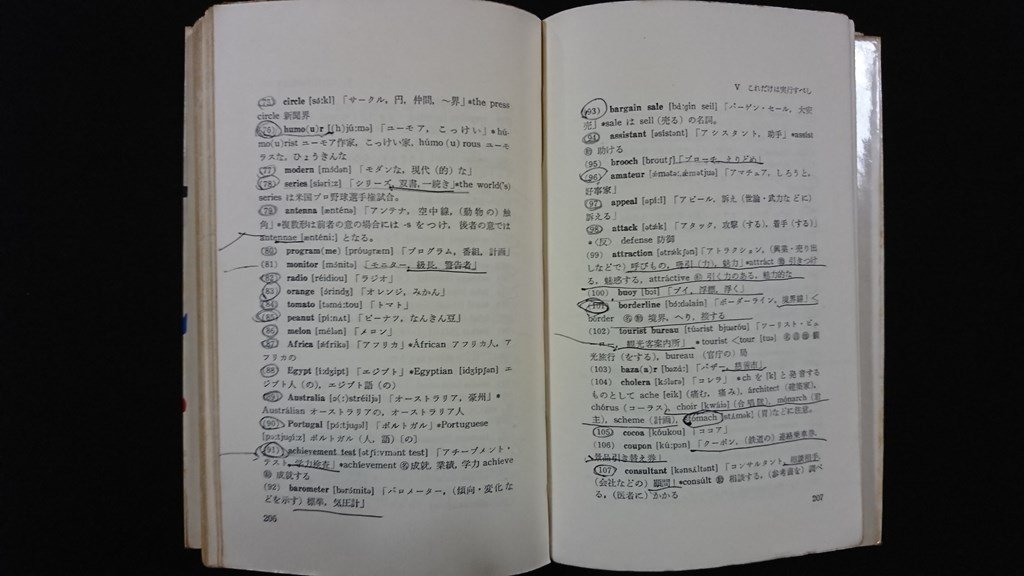 (75) circle [sə́:kl] 「サークル, 円, 仲間, 〜界」*the press
circle 新聞界
(76) humo(u)r [(h)jú:mə] 「ユーモア, こっけい」*hú-
mo(u)rist ユーモア作家, こっけい家, húmo (u) rous ユーモ
ラスな, ひょうきんな
(77) modern [mɔ́dən] 「モダンな, 現代 (的) な」
(78) series [síəri:z] 「シリーズ, 双書, 一続き」*the world('s)
series は米国プロ野球選手権試合。
(79) antenna [ænténə] 「アンテナ, 空中線, (動物の) 触
角」*複数形は前者の意の場合には -s をつけ, 後者の意では
antennae [ænténi:] となる。
(80) program(me) [próugræm] 「プログラム, 番組, 計画」
(81) monitor [mɔ́nitə] 「モニター, 級長, 警告者」
(82) radio [réidiou] 「ラジオ」
(83) orange [ɔ́rindʒ] 「オレンジ, みかん」
(84) tomato [təmá:tou] 「トマト」
(85) peanut [pí:nʌt] 「ピーナツ, なんきん豆」
(86) melon [mélən] 「メロン」
(87) Africa [ǽfrikə] 「アフリカ」*African アフリカ人, ア
フリカの
(88) Egypt [í:dʒipt] 「エジプト」*Egyptian [idʒípʃən] エ
ジプト人 (の), エジプト語 (の)
(89) Australia [ɔ(:)stréiljə] 「オーストラリア, 豪州」*
Austrálian オーストラリアの, オーストラリア人
(90) Portugal [pɔ́:tjugəl] 「ポルトガル」*Portuguese
[pɔ:tjugí:z] ポルトガル (人, 語) (の)
(91) achievement test [ətʃí:vmənt test] 「アチーブメント・
テスト, 学力検査」*achievement 名 成就, 業績, 学力 achieve
動 成就する
(92) barometer [bərɔ́mitə] 「バロメーター, (傾向・変化な
どを示す) 標準, 気圧計」
206
V これだけは実行すべし
(93) bargain sale [bá:gin seil] 「バーゲン・セール, 大安
売」*sale は sell (売る) の名詞。
(94) assistant [əsístənt] 「アシスタント, 助手」*assist
動 助ける
(95) brooch [broutʃ] 「ブローチ, えりどめ」
(96) amateur [ǽmətə:, ǽmətjuə] 「アマチュア, しろうと,
好事家」
(97) appeal [əpí:l] 「アピール, 訴え (世論・武力などに)
訴える」
(98) attack [ətǽk] 「アタック, 攻撃 (する), 着手 (する)」
*〈反〉 defense 防御
(99) attraction [ətrǽkʃən] 「アトラクション, (興業・売り出
しなどで) 呼びもの, 吸引 (力), 魅力」*attráct 動 引きつけ
る, 魅惑する, attráctive 形 引く力のある, 魅力的な
(100) buoy [bɔi] 「ブイ, 浮標, 浮く」
(101) borderline [bɔ́:dəlain] 「ボーダーライン, 境界線」<
bórder 名 動 境界, へり, 接する
(102) tourist bureau [túərist bjuəróu] 「ツーリスト・ビュ
ーロー, 観光客案内所」*tourist <tour [tuə] 名 動 観
光旅行 (をする), bureau (官庁の) 局
(103) baza(a)r [bəzá:] 「バザー, 慈善市」
(104) cholera [kɔ́lərə] 「コレラ」 *ch を [k] と発音する
ものとして ache [eik] (痛む, 痛み), árchitect (建築家),
chórus (コーラス), choir [kwáiə] (合唱隊), mónarch (君
主), scheme (計画), stómach [stʌ́mək] (胃)などに注意。
(105) cocoa [kóukou] 「ココア」
(106) coupon [kú:pɔn] 「クーポン, (鉄道の) 連絡乗車券,
景品引き替え券」
(107) consultant [kənsʌ́ltənt] 「コンサルタント, 相談相手,
(会社などの) 顧問」*consúlt 動 相談する, (参考書を) 調べ
る, (医者に) かかる
207